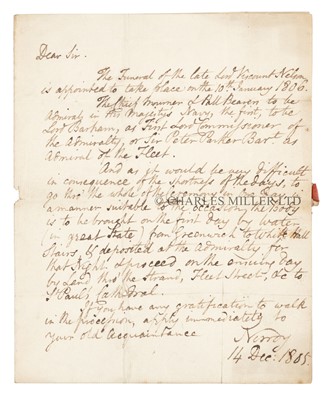 Dear Sir.
The Funeral of the late Lord Viscount Nelson
is appointed to take place on the 10th January 1806.
The Chief Mourner & Pall Bearers to be
Admirals in His Majestys Navy, the first, to be
Lord Barham, as First Lord Commissioner of
the Admiralty, or Sir Peter Parker Bart. as
Admiral of the Fleet.
And as it would be very difficult
in consequence of the shortness of the Days, to
go thro the whole of the
a manner suitable to the the Body
is to be brought on the first day by water
(in great State) from Greenwich to White Hall
Stairs, & deposited at the Admiralty for
that Night & proceed on the ensuing day
by Land thro the Strand, Fleet Street, &c to
St Pauls Cathedral.
If You have any gratification to walk
in the procession, apply immediately to
your old Acquaintance
Norroy
14 Decr. 1805.
© CHARLES MILLER LTD